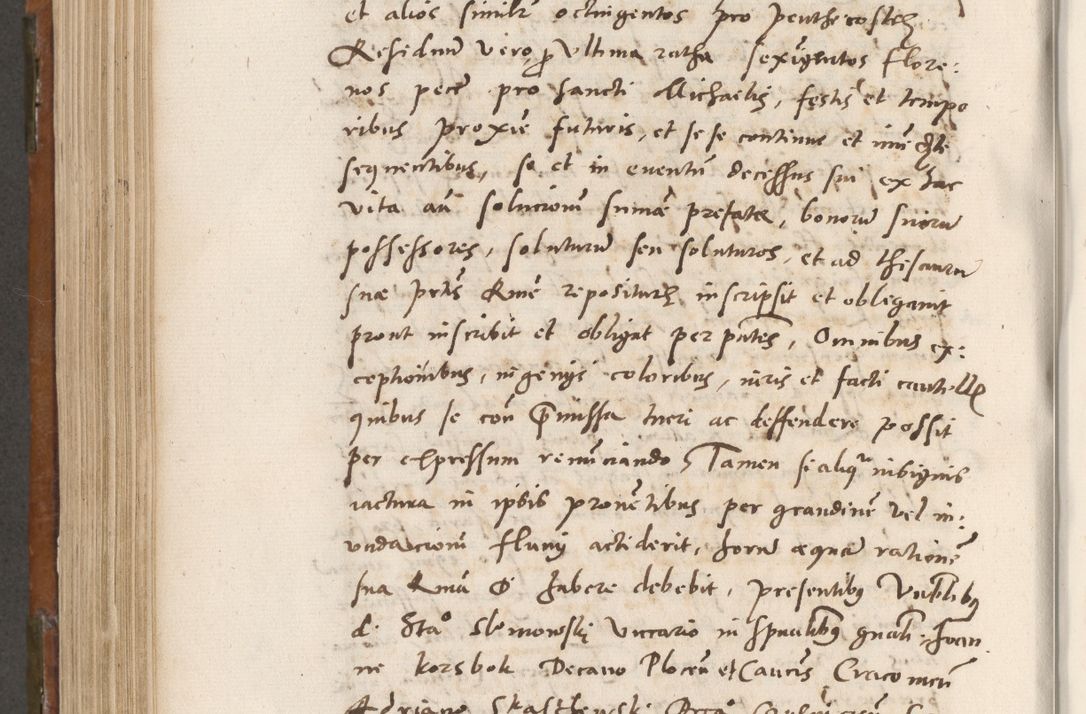 et alios similr octingentos pro penthecostes
Residuum vero p ultima ratha sexigentos flore:
nos pecc pro sancti Michaelis, festis et tempo
ribus proxie futuris, et sese continue et
sequentibus, se et in eventu decessus sui ex hac
vita an solucionu sumae prefatae, bonoru suoru
possessores, soluturu seu soluturos, et ad thesauru
suae prtis Rme repositur inscripsit et obligavit
prout inscribit et obligat per pntes, Omnibus ex:
ceptionibus, ingenys coloribus, iuris et facti cautelle
quibus se con pmissa tueri ac deffendere possit
per expressum renunciando Tamen si aliqua
iactura in ipsis proventibus per grandine vel in:
undacionu fluvy actiderit, horu aequa ratione
sua Rma D habere debebit, presentibus
d. Sta° Slomowski Viccario in spualibus gnali, Joan
ne korsbok Decano Plocen et Caucis Cracovien
Adriano